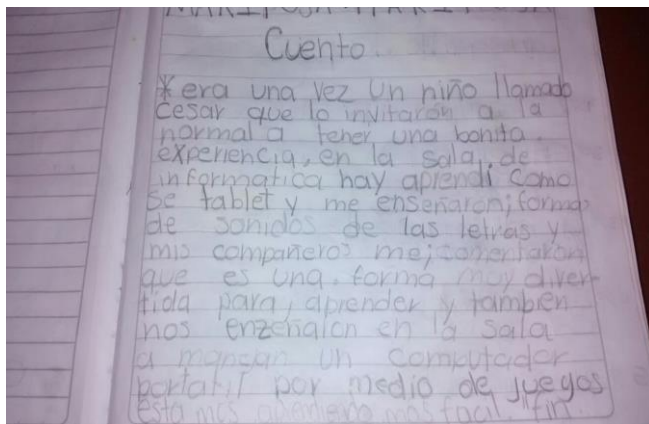 Cuento.
*era una vez un niño llamado
Cesar que lo invitarón a la
normal a tener una bonita
experiencia, en la sala, de
informatica hay aprendi como
se tablet y me enseñaron; forma
de sonidos de las letras y
mis compañeros me; comentarón
que es una forma muy diver-
tida para, aprender, y tambien
nos enzeñalon en la sala
a un computador
portatil por medio de juegos
fin.